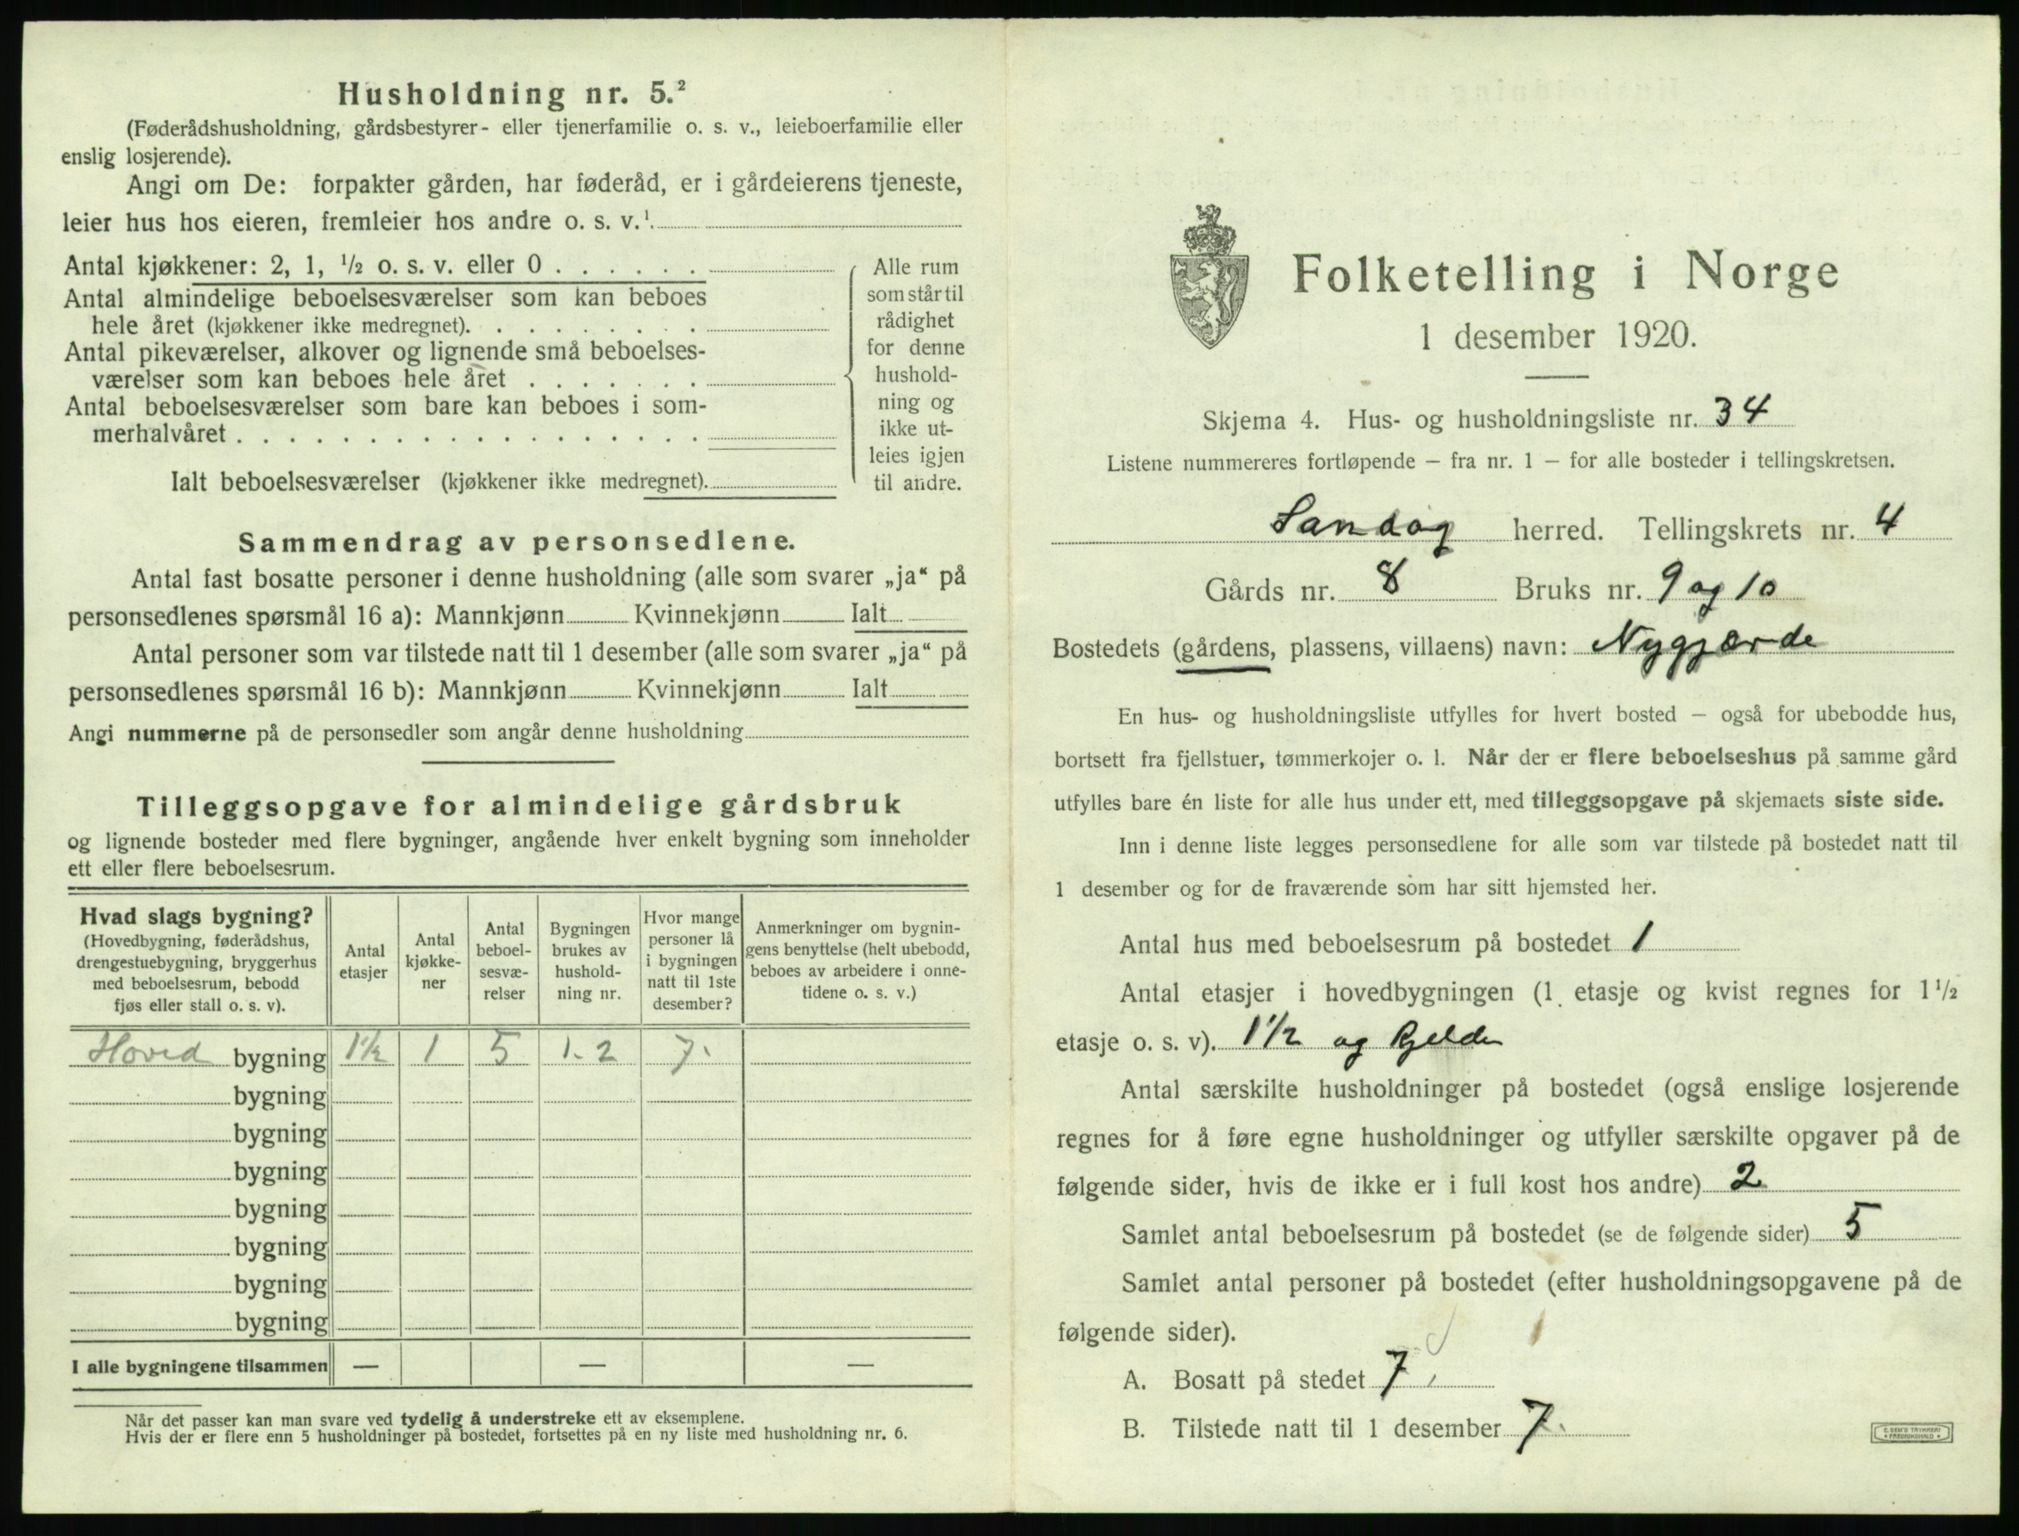 Husholdning nr. 5.²
(Føderådshusholdning, gårdsbestyrer- eller tjenerfamilie o. s. v., leieboerfamilie eller
enslig losjerende).
Angi om De: forpakter gården, har føderåd, er i gårdeierens tjeneste,
leier hus hos eieren, fremleier hos andre o. s. v.¹
Antal kjøkkener: 2, 1, ½ o. s. v. eller 0
Antal almindelige beboelsesværelser som kan beboes
hele året (kjøkkener ikke medregnet).
Antal pikeværelser, alkover og lignende små beboelses-
værelser som kan beboes hele året
Antal beboelsesværelser som bare kan beboes i som-
merhalvåret
Ialt beboelsesværelser (kjøkkener ikke medregnet).
Alle rum
som står til
rådighet
for denne
hushold-
ning og
ikke ut-
leies igjen
til andre.
Sammendrag av personsedlene.
Antal fast bosatte personer i denne husholdning (alle som svarer „ja“ på
personsedlenes spørsmål 16 a): Mannkjønn Kvinnekjønn Ialt
Antal personer som var tilstede natt til 1 desember (alle som svarer „ja“ på
personsedlenes spørsmål 16 b): Mannkjønn Kvinnekjønn Ialt
Angi nummerne på de personsedler som angår denne husholdning
Tilleggsopgave for almindelige gårdsbruk
og lignende bosteder med flere bygninger, angående hver enkelt bygning som inneholder
ett eller flere beboelsesrum.
Hvad slags bygning?
(Hovedbygning, føderådshus,
drengestuebygning, bryggerhus
med beboelsesrum, bebodd
fjøs eller stall o. s. v).
Antal
etasjer
Antal
kjøkke-
ner
Antal
beboel-
sesvæ-
relser
Bygningen
brukes av
hushold-
ning nr.
Hvor mange
personer lå
i bygningen
natt til 1ste
desember?
Anmerkninger om bygnin-
gens benyttelse (helt ubebodd,
beboes av arbeidere i onne-
tidene o. s. v.)
Hoved bygning 1½ 1 5 1. 2 7.
bygning
bygning
bygning
bygning
bygning
bygning
bygning
I alle bygningene tilsammen — — —
Når det passer kan man svare ved tydelig å understreke ett av eksemplene.
Hvis der er flere enn 5 husholdninger på bostedet, fortsettes på en ny liste med husholdning nr. 6.
Folketelling i Norge
1 desember 1920.
Skjema 4. Hus- og husholdningsliste nr. 34
Listene nummereres fortløpende – fra nr. 1 – for alle bosteder i tellingskretsen.
Sandøy herred. Tellingskrets nr. 4
Gårds nr. 8 Bruks nr. 9 og 10
Bostedets (gårdens, plassens, villaens) navn: Nygjærde
En hus- og husholdningsliste utfylles for hvert bosted – også for ubebodde hus,
bortsett fra fjellstuer, tømmerkojer o. l. Når der er flere beboelseshus på samme gård
utfylles bare én liste for alle hus under ett, med tilleggsopgave på skjemaets siste side.
Inn i denne liste legges personsedlene for alle som var tilstede på bostedet natt til
1 desember og for de fraværende som har sitt hjemsted her.
Antal hus med beboelsesrum på bostedet 1
Antal etasjer i hovedbygningen (1 etasje og kvist regnes for 1½
etasje o. s. v). 1½ og Kjelder
Antal særskilte husholdninger på bostedet (også enslige losjerende
regnes for å føre egne husholdninger og utfyller særskilte opgaver på de
følgende sider, hvis de ikke er i full kost hos andre) 2
Samlet antal beboelsesrum på bostedet (se de følgende sider) 5
Samlet antal personer på bostedet (efter husholdningsopgavene på de
følgende sider).
A. Bosatt på stedet 7
B. Tilstede natt til 1 desember 7.